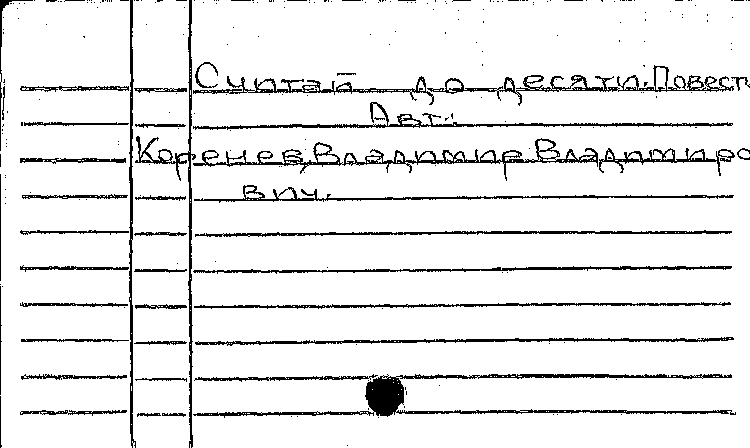 Считай до десяти. Повесть
Авт.:
Коренев, Владимир Владимиро
вич.